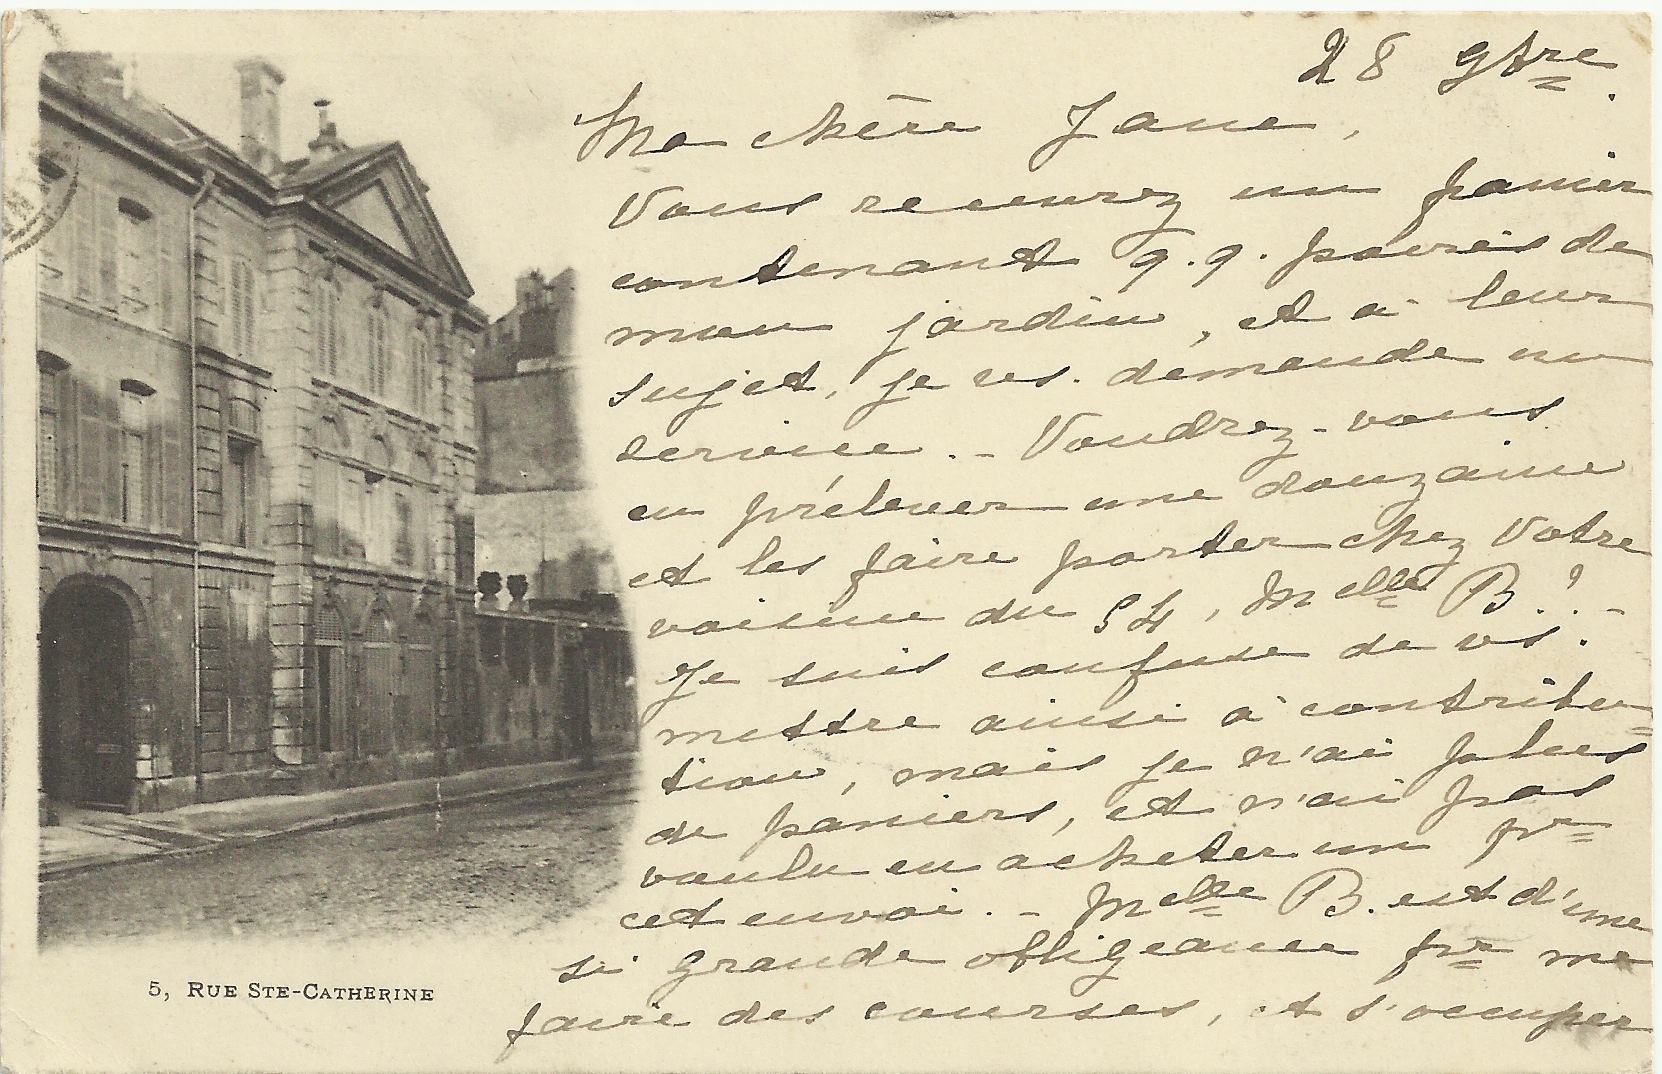 28 9bre.
Ma chère Jane,
Vous recevrez un panier
contenant q.q. poires de
mon jardin, et à leur
sujet, je vs. demande un
service. - Voudrez-vous
en prélever une douzaine
et les faire porter chez votre
voisine du 54, Melle B.? -
Je suis confuse de vs.
mettre ainsi à contribu-
tion, mais je n'ai plus
de paniers, et n'ai pas
voulu en acheter un pr
cet envoi. - Melle B. est d'une
si grande obligeance pr me
faire des courses, et s'occuper
5, RUE STE-CATHERINE